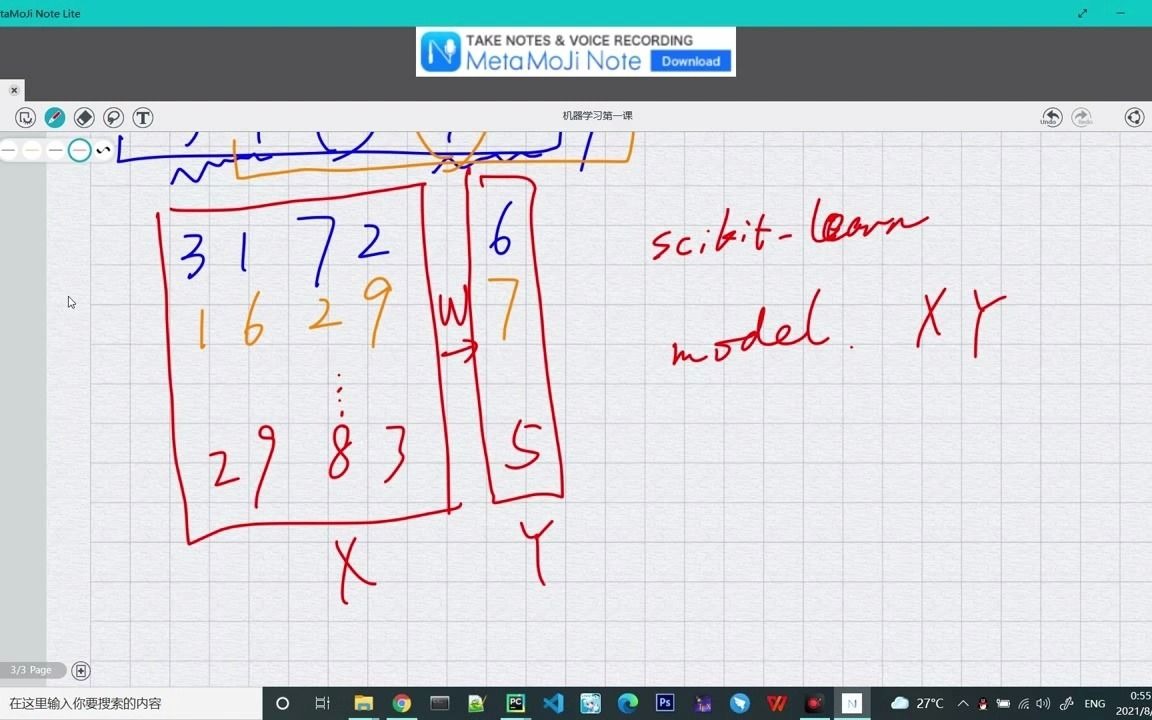 taMoJi Note Lite
TAKE NOTES & VOICE RECORDING
MetaMoJi Note Download
机器学习第一课
Undo
Redo
T
3 1 7 2 6
scikit-learn
1 6 2 9 W 7
model. X Y
2 9 8 3 5
X Y
3/3 Page
在这里输入你要搜索的内容
27°C
ENG
0:55
2021/8/